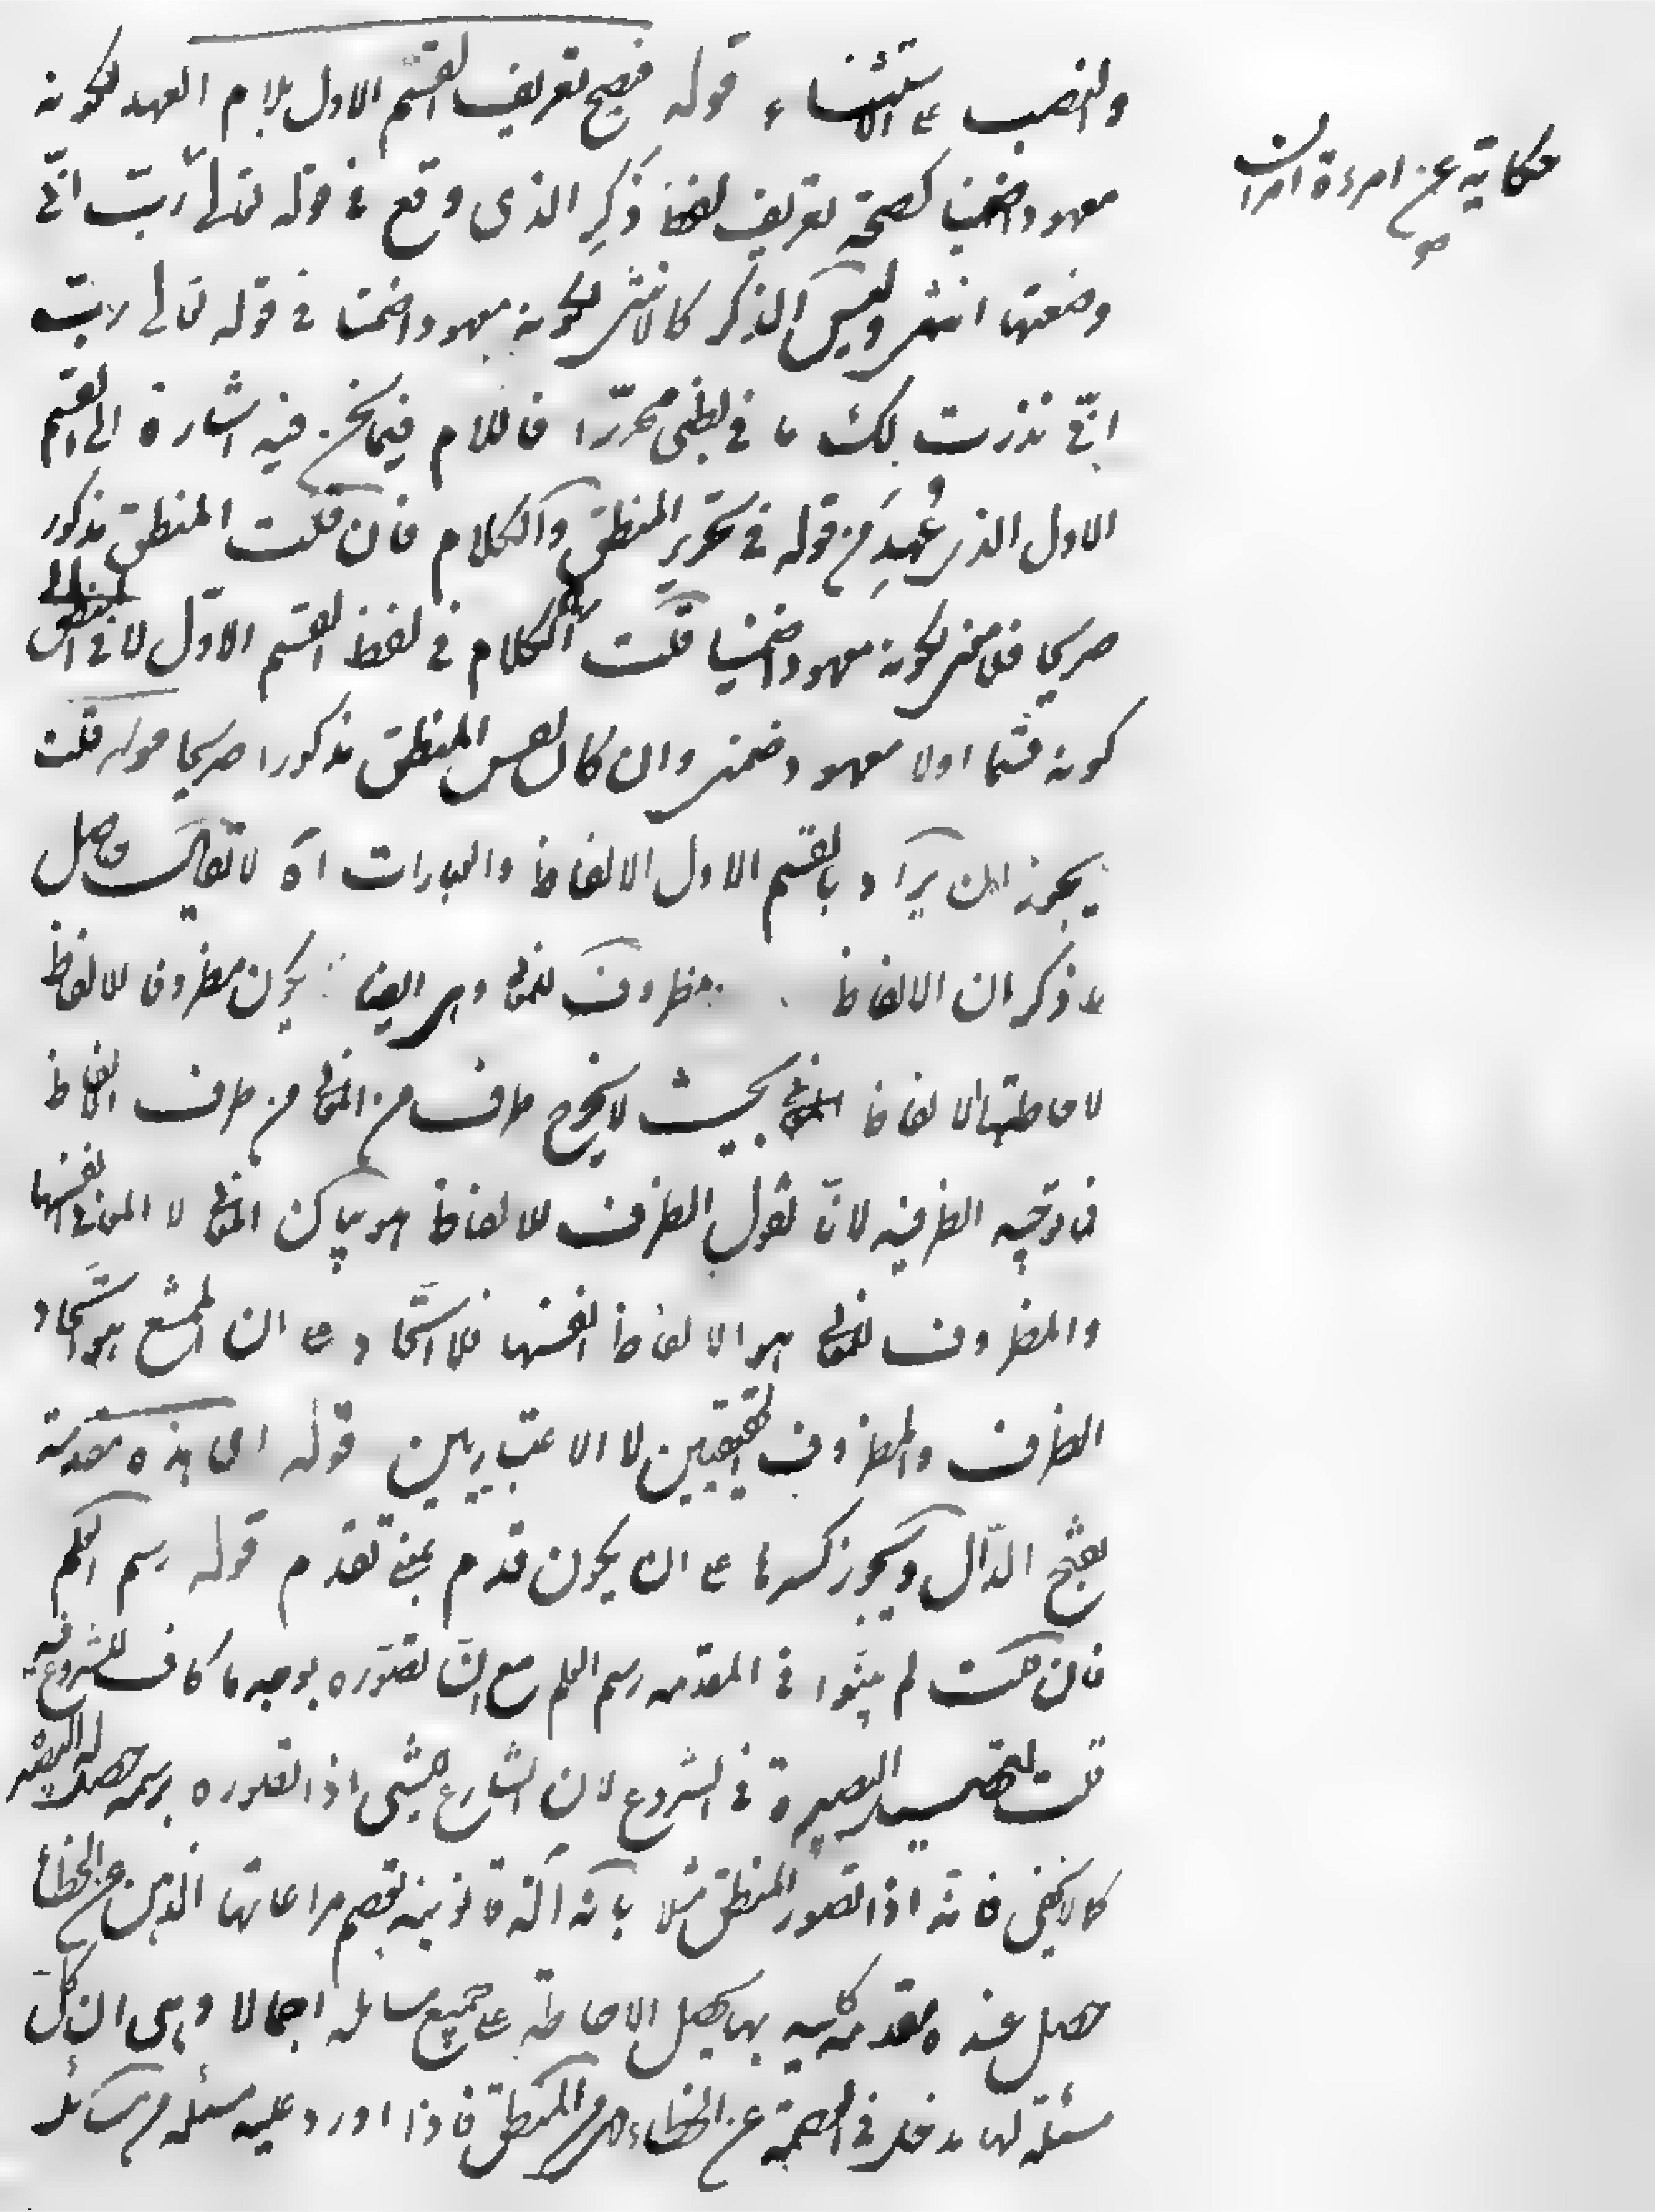 والنصب ع الاستثناء قوله فصح تعريف القسم الاول بلام العهد لكونه
معهودا ضمنا كصحة تعريف لفظ ذكر الذى وقع فى قوله تعالى رب انّى
وضعتها انثى وليس الذكر كالانثى لكونه معهودا ضمنا فى قوله تعالى رب
انّى نذرت لك ما فى بطنى محرّرا فاللام فيما نحن فيه اشارة الى القسم
الاول الذى عُهِدَ من قوله فى تحرير المنطق والكلام فان قلت المنطق مذكور
صريحا فما معنى لكونه معهودا ضمنيا قلت الكلام فى لفظ القسم الاوّل لا فى المنطق
كونه قسما اولا معهود ضمنى وان كان نفس المنطق مذكورا صريحا قوله قلت
يجوز ان يراد بالقسم الاول الالفاظ والعبارات اه لا يقال حاصل
ما ذكر ان الالفاظ مظروف للمعانى وهى ايضا يكون مظروفا للالفاظ
لاحاطتها الالفاظ بحيث لا يخرج طرف من المعانى من طرف الالفاظ
فما توجيه الظرفيه لانّا نقول الظرف للالفاظ هو بيان المعانى لا المعانى نفسها
والمظروف للمعانى هو الالفاظ انفسها فلا اتّحاد ع ان الممتنع هو اتّحاد
الظرف والمظروف الحقيقيين لا الاعتباريين قوله اى هذه مقدمة
بفتح الدّال ويجوز كسرها ع ان يكون قدم بمعنى تقدم قوله رسم العلم
فان قلت لم بيّنوا فى المقدمه رسم العلم مع انّ تصوّره بوجه ما كاف للشروع فيه
قلت لتحصيل البصيرة فى الشروع لان الشارع فى شى اذا تصوره برسمه حصل له البصيرة
كما لا يخفى فانه اذا تصور المنطق مثلا بانه آلة قانونيه تعصم مراعاتها الذهن عن الخطاء
حصل عنده مقدمه كليه بها يحصل الاحاطة ع جميع مسائله اجمالا وهى ان كلّ
مسئلة لها مدخل فى العصمة عن الخطاء فهى من المنطق فاذا اورد عليه مسئله من مسائله
حكاية عن امرءة عمران